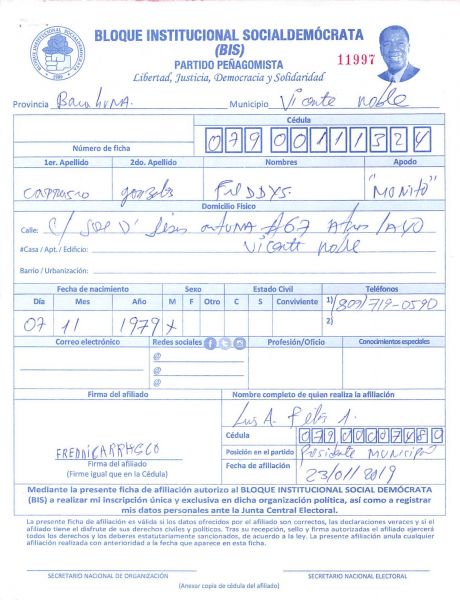 BLOQUE INSTITUCIONAL SOCIALDEMÓCRATA
(BIS)
PARTIDO PEÑAGOMISTA
11997
Libertad, Justicia, Democracia y Solidaridad
Provincia Barahona. Municipio Vicente noble
Cédula
Número de ficha 07900111324
1er. Apellido 2do. Apellido Nombres Apodo
Carrasco gonzales FREDDYS. "MONITO"
Domicilio Físico
Calle: C/ #67
#Casa / Apt. / Edificio: Vicente noble
Barrio / Urbanización:
Fecha de nacimiento Sexo Estado Civil Teléfonos
Día Mes Año M F Otro C S Conviviente 1) (809) 719-0590
07 11 1979 x 2)
Correo electrónico Redes sociales Profesión/Oficio Conocimientos especiales
@
@
@
Firma del afiliado Nombre completo de quien realiza la afiliación
Luis A. Feliz
Cédula 07900007480
FREDDICARRASCO Posición en el partido Presidente Municipal
Firma del afiliado Fecha de afiliación
(Firme igual que en la Cédula) 23/01/2019
Mediante la presente ficha de afiliación autorizo al BLOQUE INSTITUCIONAL SOCIAL DEMÓCRATA
(BIS) a realizar mi inscripción única y exclusiva en dicha organización política, así como a registrar
mis datos personales ante la Junta Central Electoral.
La presente ficha de afiliación es válida si los datos ofrecidos por el afiliado son correctos, las declaraciones veraces y si el
afiliado tiene el disfrute de sus derechos civiles y políticos. Tras su recepción, sello y firma autorizadas el afiliado ejercerá
todos los derechos y los deberes estatutariamente sancionados, de acuerdo a la ley. La presente afiliación anula cualquier
afiliación realizada con anterioridad a la fecha que aparece en esta ficha.
SECRETARIO NACIONAL DE ORGANIZACIÓN SECRETARIO NACIONAL ELECTORAL
(Anexar copia de cédula del afiliado)